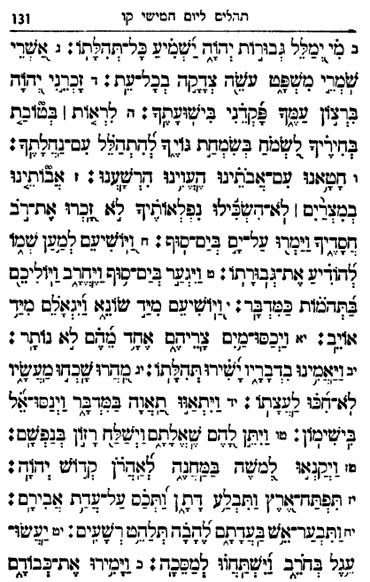 131 תהלים ליום חמישי קו
ב מִ֗י יְ֭מַלֵּל גְּבוּר֣וֹת יְהוָ֑ה יַ֝שְׁמִ֗יעַ כׇּל־תְּהִלָּתֽוֹ׃ ג אַ֭שְׁרֵי
שֹׁמְרֵ֣י מִשְׁפָּ֑ט עֹשֵׂ֖ה צְדָקָ֣ה בְכׇל־עֵֽת׃ ד זׇכְרֵ֣נִי יְ֭הוָה
בִּרְצ֣וֹן עַמֶּ֑ךָ פׇּ֝קְדֵ֗נִי בִּישׁוּעָתֶֽךָ׃ ה לִרְא֤וֹת ׀ בְּט֘וֹבַ֤ת
בְּחִירֶ֗יךָ לִ֭שְׂמֹחַ בְּשִׂמְחַ֣ת גּוֹיֶ֑ךָ לְ֝הִתְהַלֵּ֗ל עִם־נַחֲלָתֶֽךָ׃
ו חָטָ֥אנוּ עִם־אֲבֹתֵ֗ינוּ הֶעֱוִ֥ינוּ הִרְשָֽׁעְנוּ׃ ז אֲב֘וֹתֵ֤ינוּ
בְמִצְרַ֨יִם ׀ לֹא־הִשְׂכִּ֬ילוּ נִפְלְאוֹתֶ֗יךָ לֹ֣א זָ֭כְרוּ אֶת־רֹ֣ב
חֲסָדֶ֑יךָ וַיַּמְר֖וּ עַל־יָ֣ם בְּיַם־סֽוּף׃ ח וַֽ֭יּוֹשִׁיעֵם לְמַ֣עַן שְׁמ֑וֹ
לְ֝הוֹדִ֗יעַ אֶת־גְּבוּרָתֽוֹ׃ ט וַיִּגְעַ֣ר בְּיַם־ס֭וּף וַֽיֶּחֱרָ֑ב וַיּוֹלִיכֵ֥ם
בַּ֝תְּהֹמ֗וֹת כַּמִּדְבָּֽר׃ י וַֽ֭יּוֹשִׁיעֵם מִיַּ֣ד שׂוֹנֵ֑א וַ֝יִּגְאָלֵ֗ם מִיַּ֥ד
אוֹיֵֽב׃ יא וַיְכַסּוּ־מַ֥יִם צָרֵיהֶ֑ם אֶחָ֥ד מֵ֝הֶ֗ם לֹ֣א נוֹתָֽר׃
יב וַיַּאֲמִ֥ינוּ בִדְבָרָ֑יו יָ֝שִׁ֗ירוּ תְּהִלָּתֽוֹ׃ יג מִֽ֭הֲרוּ שָׁכְח֣וּ מַעֲשָׂ֑יו
לֹֽא־חִ֝כּ֗וּ לַעֲצָתֽוֹ׃ יד וַיִּתְאַוּ֣וּ תַ֭אֲוָה בַּמִּדְבָּ֑ר וַיְנַסּוּ־אֵ֝֗ל
בִּֽישִׁימֽוֹן׃ טו וַיִּתֵּ֣ן לָ֭הֶם שֶׁאֱלָתָ֑ם וַיְשַׁלַּ֖ח רָז֣וֹן בְּנַפְשָֽׁם׃
טז וַיְקַנְא֣וּ לְ֭מֹשֶׁה בַּֽמַּחֲנֶ֑ה לְ֝אַהֲרֹ֗ן קְד֣וֹשׁ יְהוָֽה׃
יז תִּפְתַּח־אֶ֭רֶץ וַתִּבְלַ֣ע דָּתָ֑ן וַ֝תְּכַ֗ס עַל־עֲדַ֥ת אֲבִירָֽם׃
יח וַתִּבְעַר־אֵ֥שׁ בַּעֲדָתָ֑ם לֶ֝הָבָ֗ה תְּלַהֵ֥ט רְשָׁעִֽים׃ יט יַעֲשׂוּ־
עֵ֥גֶל בְּחֹרֵ֑ב וַ֝יִּשְׁתַּחֲו֗וּ לְמַסֵּכָֽה׃ כ וַיָּמִ֥ירוּ אֶת־כְּבוֹדָ֑ם